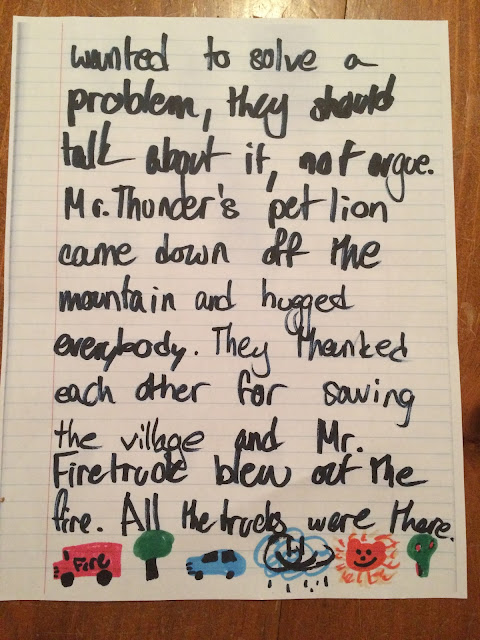 wanted to solve a
problem, they should
talk about it, not argue.
Mr. Thunder's pet lion
came down off the
mountain and hugged
everybody. They thanked
each other for saving
the village and Mr.
Firetruck blew out the
fire. All the trucks were there.
FIRE